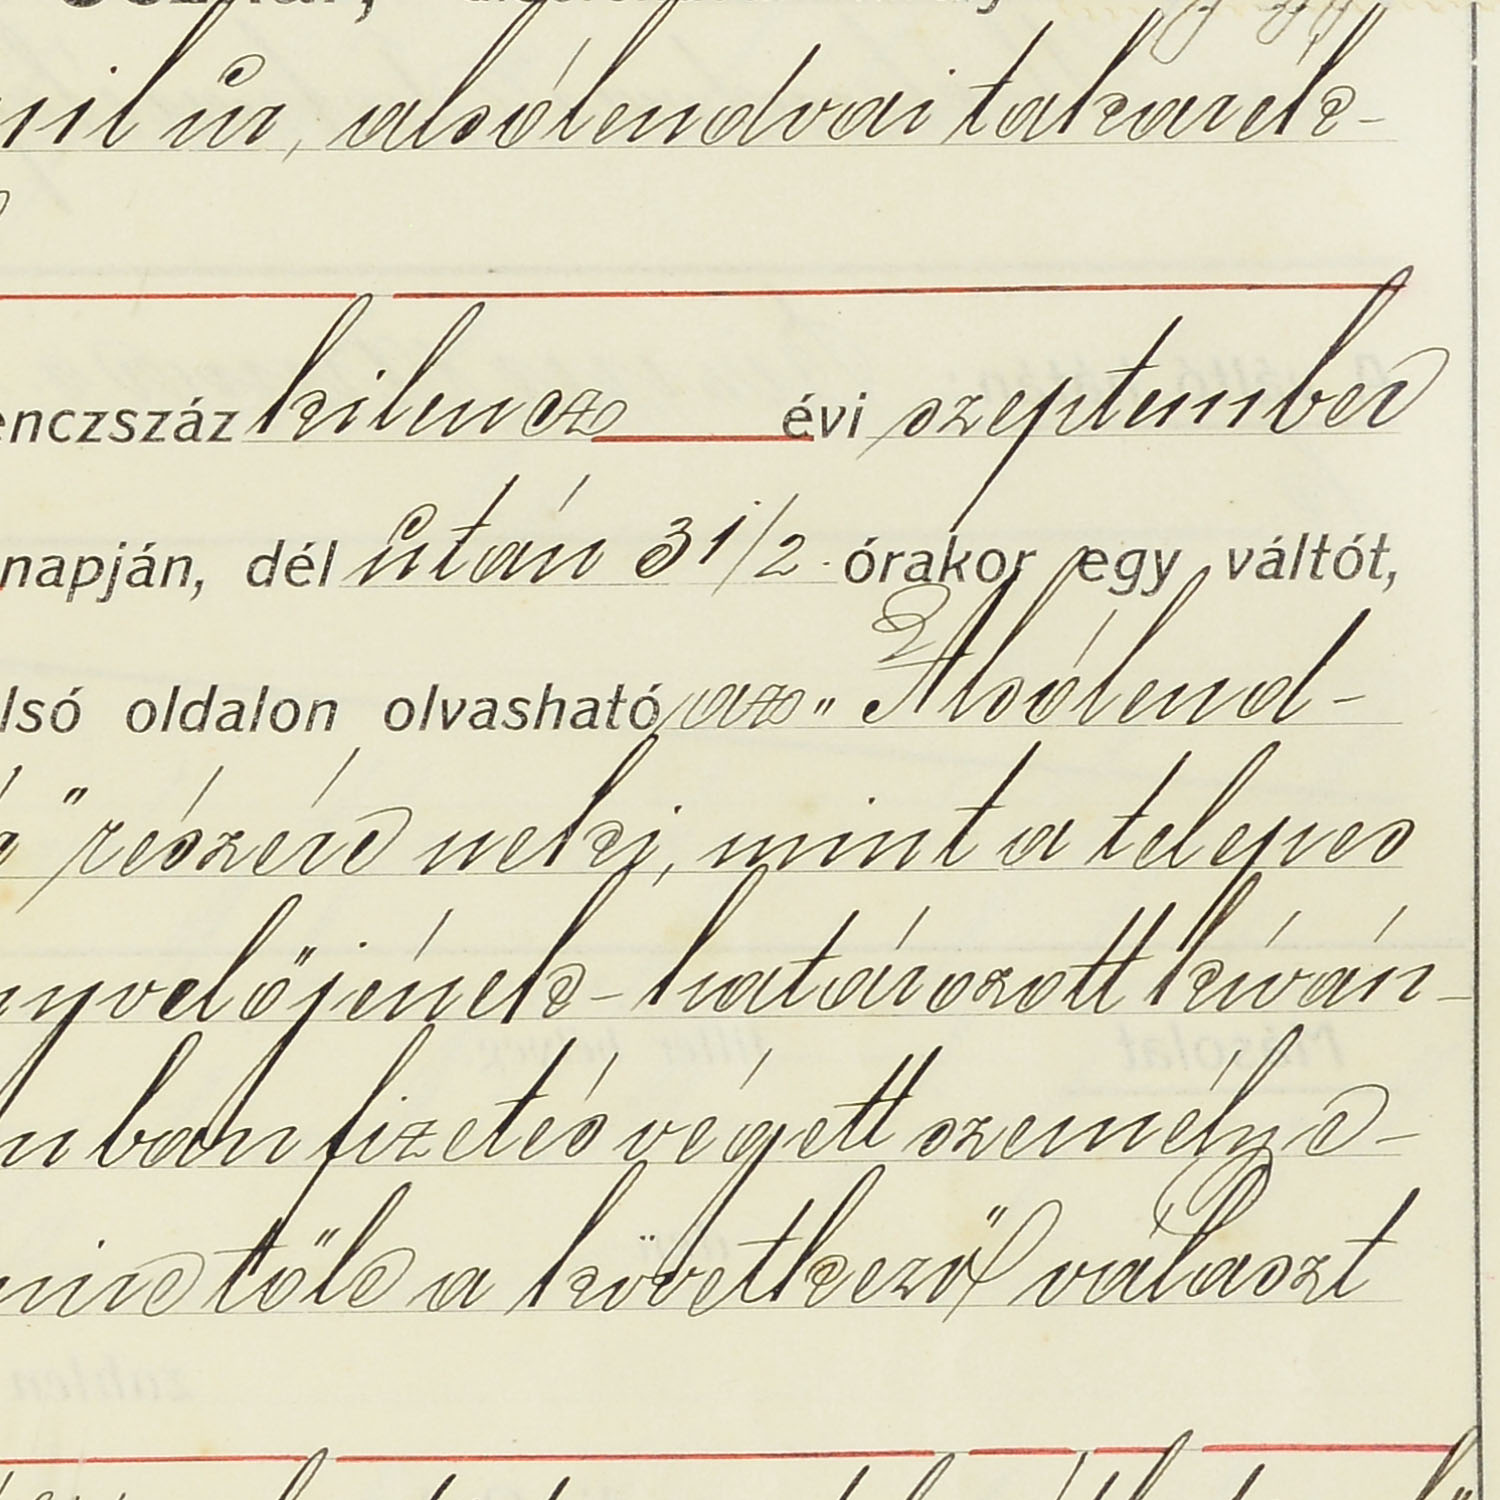 úr, alsólendvai takarék-
enczszáz kilencz évi szeptember
napján, dél után 3 1/2 órakor egy váltót,
lsó oldalon olvasható az „Alsólend-
" részére neki, mint a telepes
nyvelőjének - határozott kíván-
ban fizetés végett személye-
mire tőle a következő választ